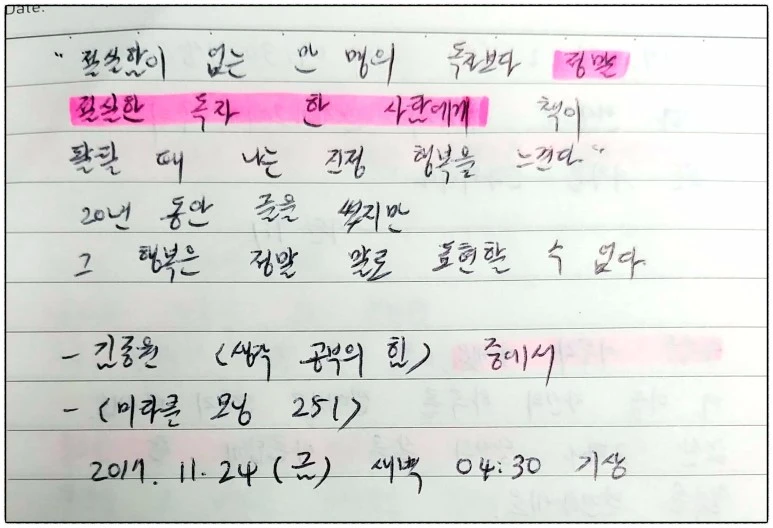 Date:
" 절실함이 없는 만 명의 독자보다 정말
절실한 독자 한 사람에게 책이
팔릴 때 나는 진정 행복을 느낀다"
20년 동안 글을 썼지만
그 행복은 정말 말로 표현할 수 없다
- 김종원 <생각 공부의 힘> 중에서
- <미라클 모닝 251>
2017. 11. 24 (금) 새벽 04:30 기상